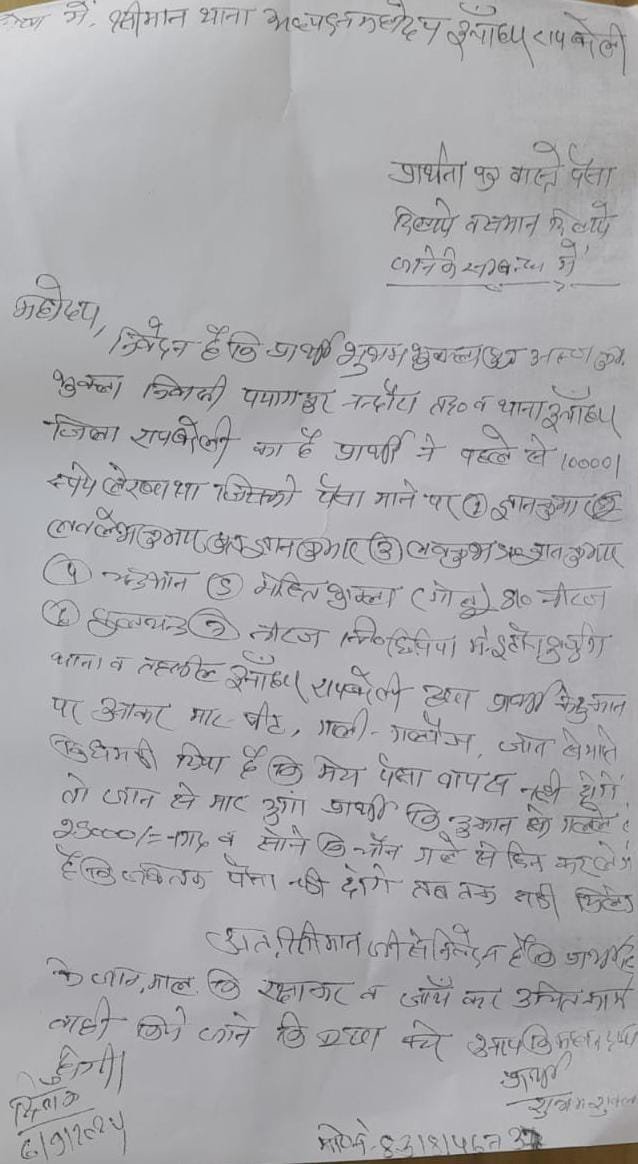 में, श्रीमान थाना अध्यक्ष महोदय ऊँचाहार रायबरेली
प्रार्थना पत्र वास्ते पैसा
दिलाये व समान दिलाये
जाने के सम्बन्ध में
महोदय,
निवेदन है कि प्रार्थी शुभम शुक्ला पुत्र
शुक्ला निवासी पयागपुर नन्दौरा तह० व थाना ऊँचाहार
जिला रायबरेली का है प्रार्थी ने पहले से 10000/
रूपये ले रखा था जिसको पैसा माने पर ① ज्ञानकुमार ②
लवलेश कुमार पुत्र ज्ञान कुमार ③ लवकुश पुत्र ज्ञान कुमार
④ ⑤ मोहित शुक्ला (गोलू) S/o नीरज
⑥ ⑦ नीरज नि०
थाना व तहसील ऊँचाहार रायबरेली द्वारा प्रार्थी के दुकान
पर आकर मार-पीट, गाली-गलौज, जान से मारने
कि धमकी दिया है कि मेरा पैसा वापस नही दोगे
तो जान से मार दुगां प्रार्थी कि दुकान के गल्ले से
25000/= नगद व सोने कि चैन गले से छिन कर ले गये
है कि जब तक पैसा नही दोगे तब तक नही मिलेगा
अतः श्रीमान जी से निवेदन है कि प्रार्थी
के जान, माल कि रक्षा कर व जाँच कर उचित कार्य
वाही किये जाने कि कृपा करे आप कि महान दया
होगी।
प्रार्थी
शुभम शुक्ला
दिनांक